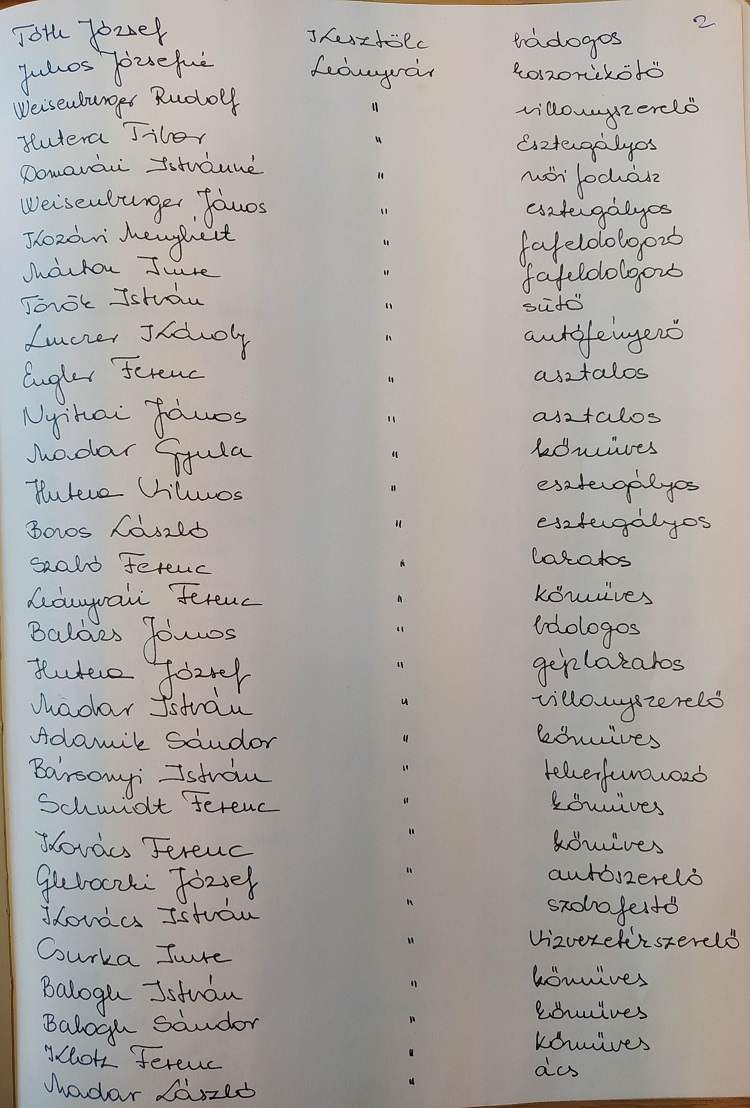 2
Tóth József Kesztölc bádogos
Juhos Józsefné Leányvár koszorúkötő
Weisenburger Rudolf " villanyszerelő
Hutera Tibor " Esztergályos
Domavári Istvánné " női fodrász
Weisenburger János " esztergályos
Kozári Menyhért " fafeldolgozó
Márton Imre " fafeldolgozó
Török István " sütő
Linczer Károly " autófényező
Engler Ferenc " asztalos
Nyitrai János " asztalos
Madar Gyula " kőműves
Hutera Vilmos " esztergályos
Boros László " esztergályos
Szabó Ferenc " lakatos
Leányvári Ferenc " kőműves
Balázs János " bádogos
Hutera József " géplakatos
Madar István " villanyszerelő
Adamik Sándor " kőműves
Bársonyi István " teherfuvarozó
Schmidt Ferenc " kőműves
Kovács Ferenc " kőműves
József " autószerelő
Kovács István " szobafestő
Csurka Imre " Vízvezetékszerelő
Balogh István " kőműves
Balogh Sándor " kőműves
Klotz Ferenc " kőműves
Madar László " ács